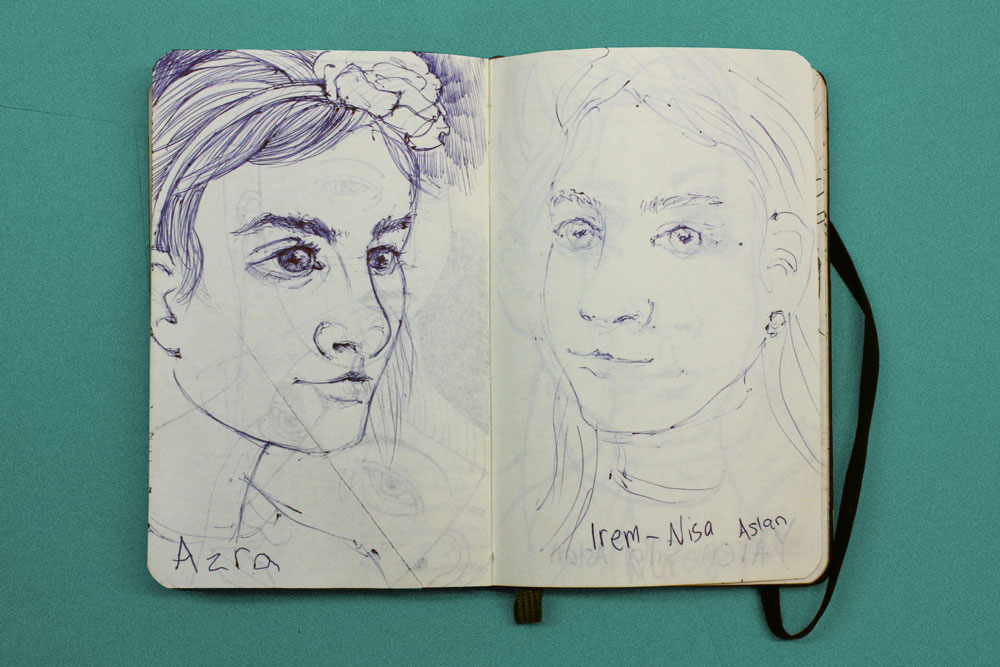 Azra
Irem-Nisa Aslan